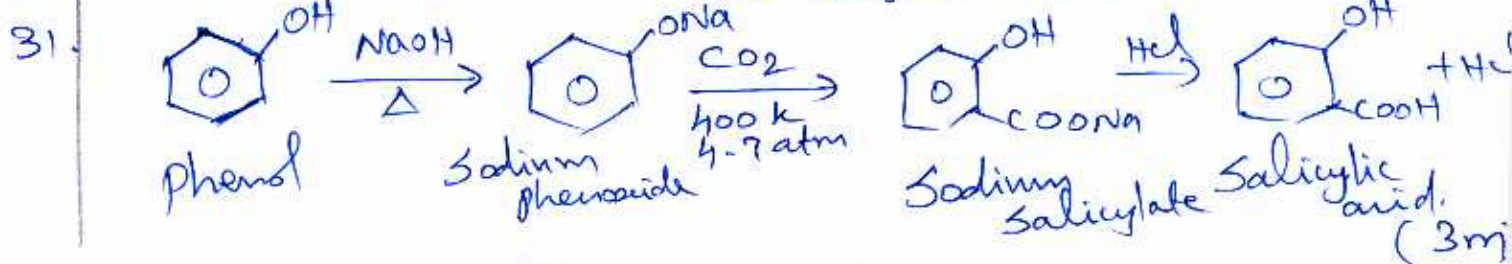 31. OH NaOH Δ ONa CO2 400 k 4-7 atm OH COONa HCl OH COOH + HCl
Phenol Sodium phenoxide Sodium salicylate Salicylic acid.
(3m)